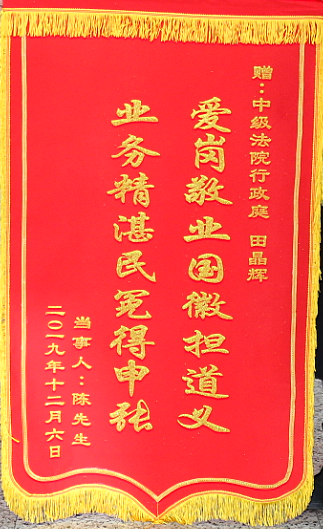 赠：中级法院行政庭 田晶辉
爱岗敬业国徽担道义
业务精湛民冤得申张
当事人：陈先生
二〇一九年十二月六日